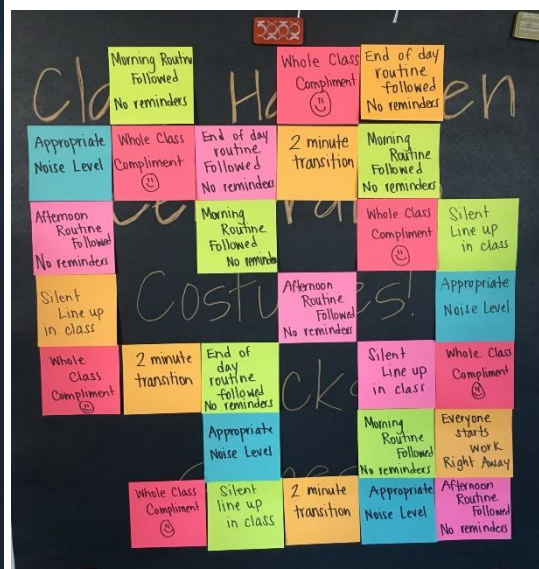 Cla
Ha
en
Morning Routine
Followed
No reminders
Whole Class
Compliment
End of day
routine
followed
No reminders
Appropriate
Noise Level
Whole Class
Compliment
End of day
routine
Followed
No reminders
2 minute
transition
Morning
Routine
Followed
No reminders
Afternoon
Routine
Followed
No reminders
Morning
Routine
Followed
No reminders
Whole Class
Compliment
Silent
Line up
in class
Silent
Line up
in class
Costumes!
Afternoon
Routine
Followed
No reminders
Appropriate
Noise Level
Whole
Class
Compliment
2 minute
transition
End of
day
routine
followed
No reminders
cks
Silent
Line up
in class
Whole Class
Compliment
Appropriate
Noise Level
Morning
Routine
Followed
No reminders
Everyone
starts
work
Right Away
Whole Class
Compliment
Silent
line up
in class
2 minute
transition
Appropriate
Noise Level
Afternoon
Routine
Followed
No reminders